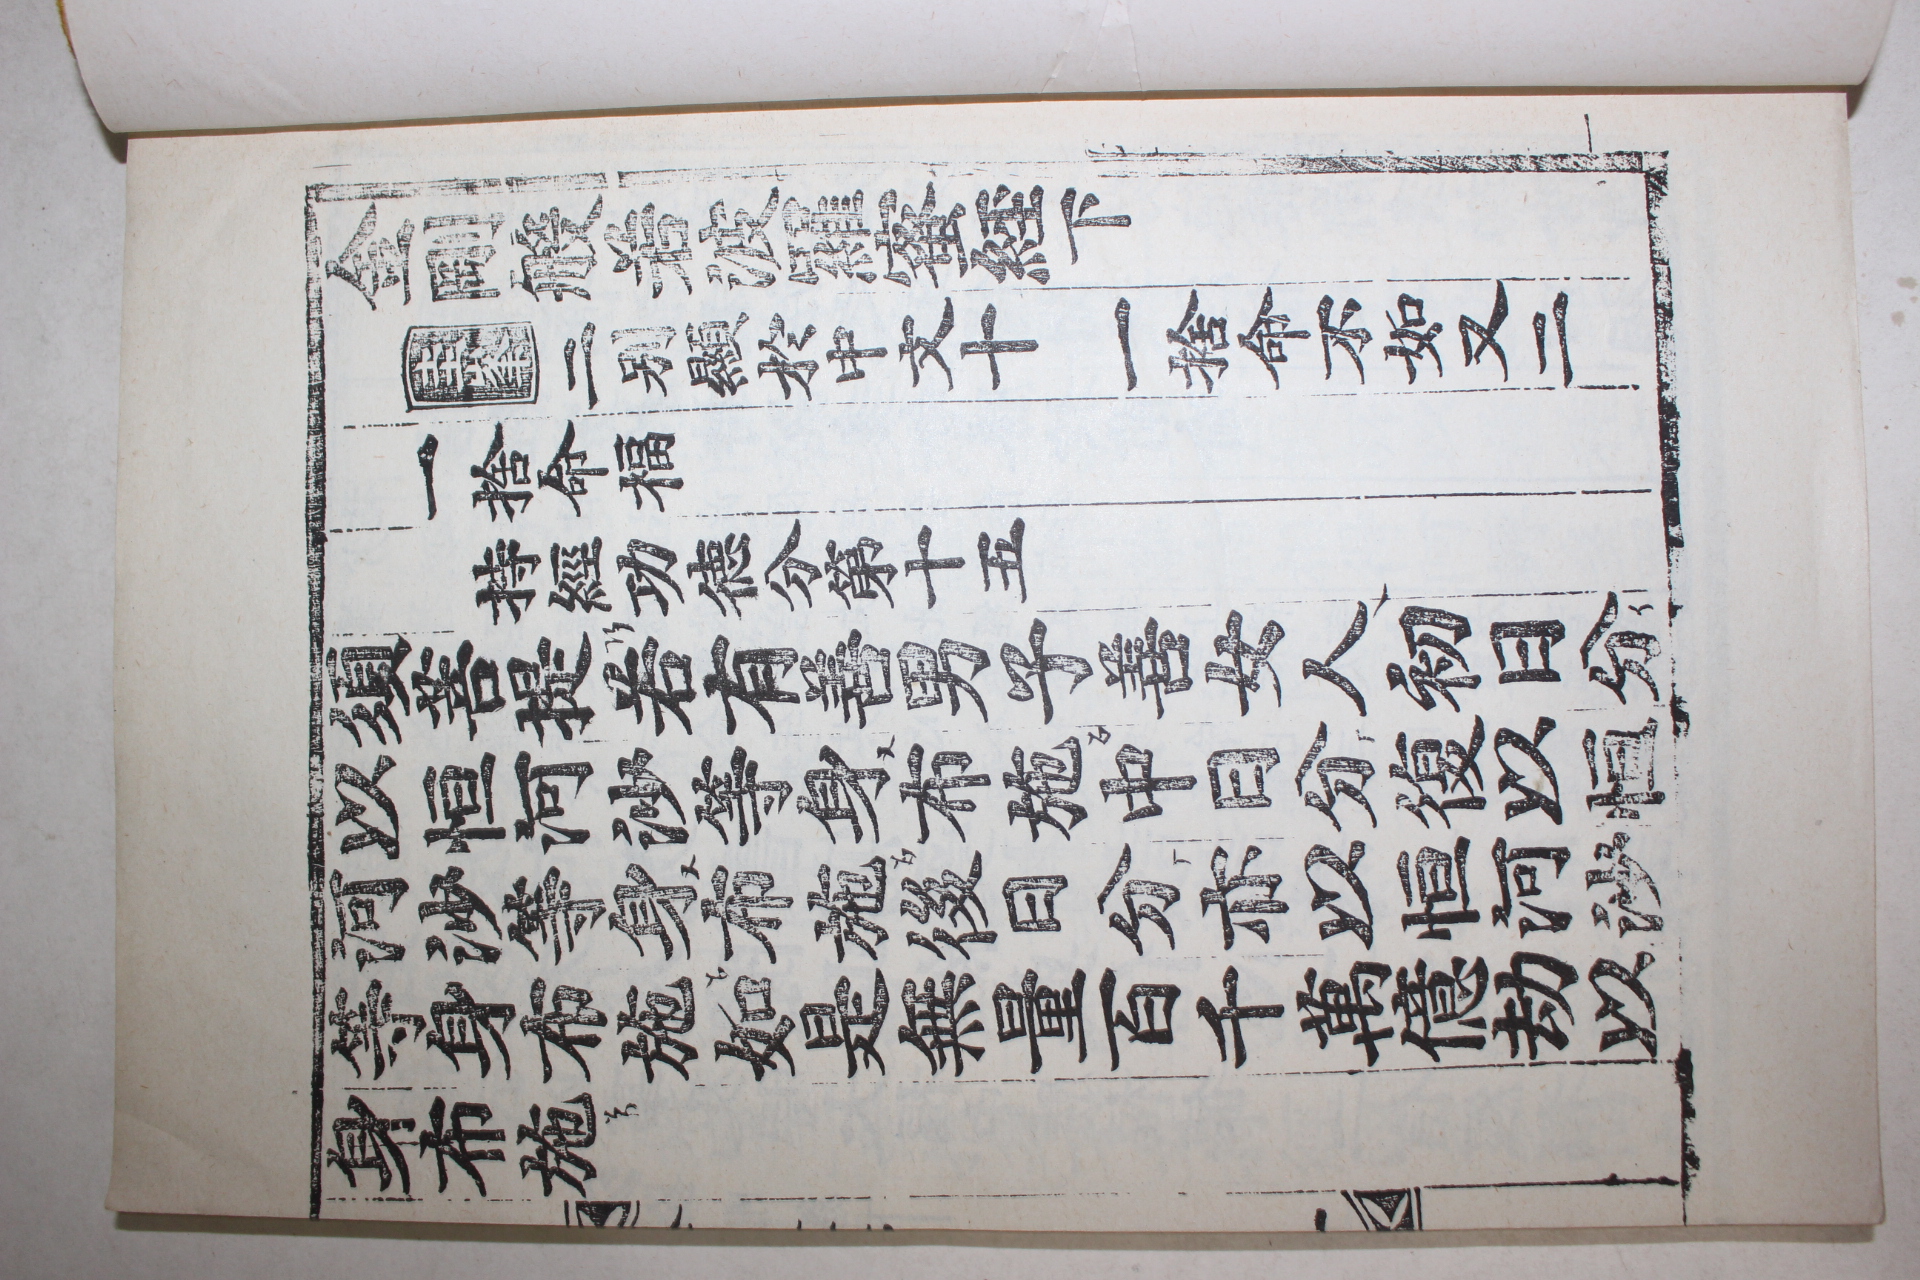 金剛般若波羅蜜經下
圭峯 二別顯於中文十 一捨命不如又三
一捨命福
持經功德分第十五
須菩提若有善男子善女人初日分
以恒河沙等身布施中日分復以恒
河沙等身布施後日分亦以恒河沙
等身布施如是無量百千萬億劫以
身布施